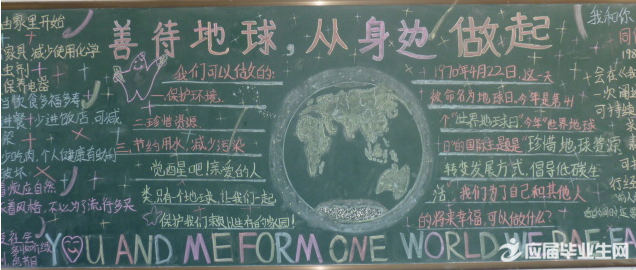 善待地球,从身边做起
由家里开始
家具 减少使用化学
虫剂
保养电器
当饮食多福多寿
进餐 少进饭店 可减
染
少吃肉,个人健康有助
破坏
着风格,不以为了流行多买
我们可以做的:
一保护环境
二珍惜资源
三节约用水,减少污染
觉醒吧!亲爱的人
类,只有一个地球,让我们一起
保护我们赖以生存的家园!
1970年4月22日,这一天
被命名为地球日,今年是第卅
个"世界地球日"今年世界地球
日的国际主题是"珍惜地球资源
转变发展方式,倡导低碳生
活"我们为了自己和其他人
的将来幸福,可以做什么?
我和你
同
会在
一次
可持续
YOU AND ME FORM ONE WORLD WE ARE FA
应届毕业生网